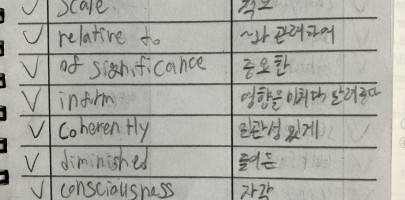 scale 척도
relative to ~와 관련하여
of significance 중요한
inform 영향을 미치다, 알려주다
Coherently 일관성 있게
diminished 줄어든
consciousness 자각